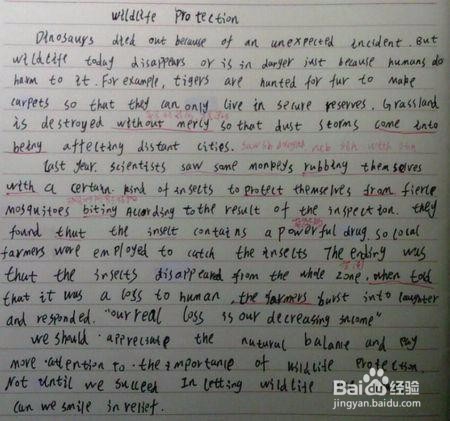 Wildlife Protection
Dinosaurs died out because of an unexpected incident. But
wildlife today disappears or is in danger just because humans do
harm to it. For example, tigers are hunted for fur to make
carpets so that they can only live in secure reserves. Grassland
is destroyed without mercy so that dust storms come into
being affecting distant cities.
last year. scientists saw some monkeys rubbing themselves
with a certain kind of insects to protect themselves from fierce
mosquitoes biting According to the result of the inspection. they
found that the insect contains a powerful drug. so local
farmers were employed to catch the insects The ending was
that the insects disappeared from the whole zone. when told
that it was a loss to human, the farmers burst into laughter
and responded. "our real loss is our decreasing income"
we should appreciate the natural balance and pay
more attention to the importance of wildlife Protection.
Not until we succeed In letting wildlife
can we smile in relief.
Baidu 经验
jingyan.baidu.com